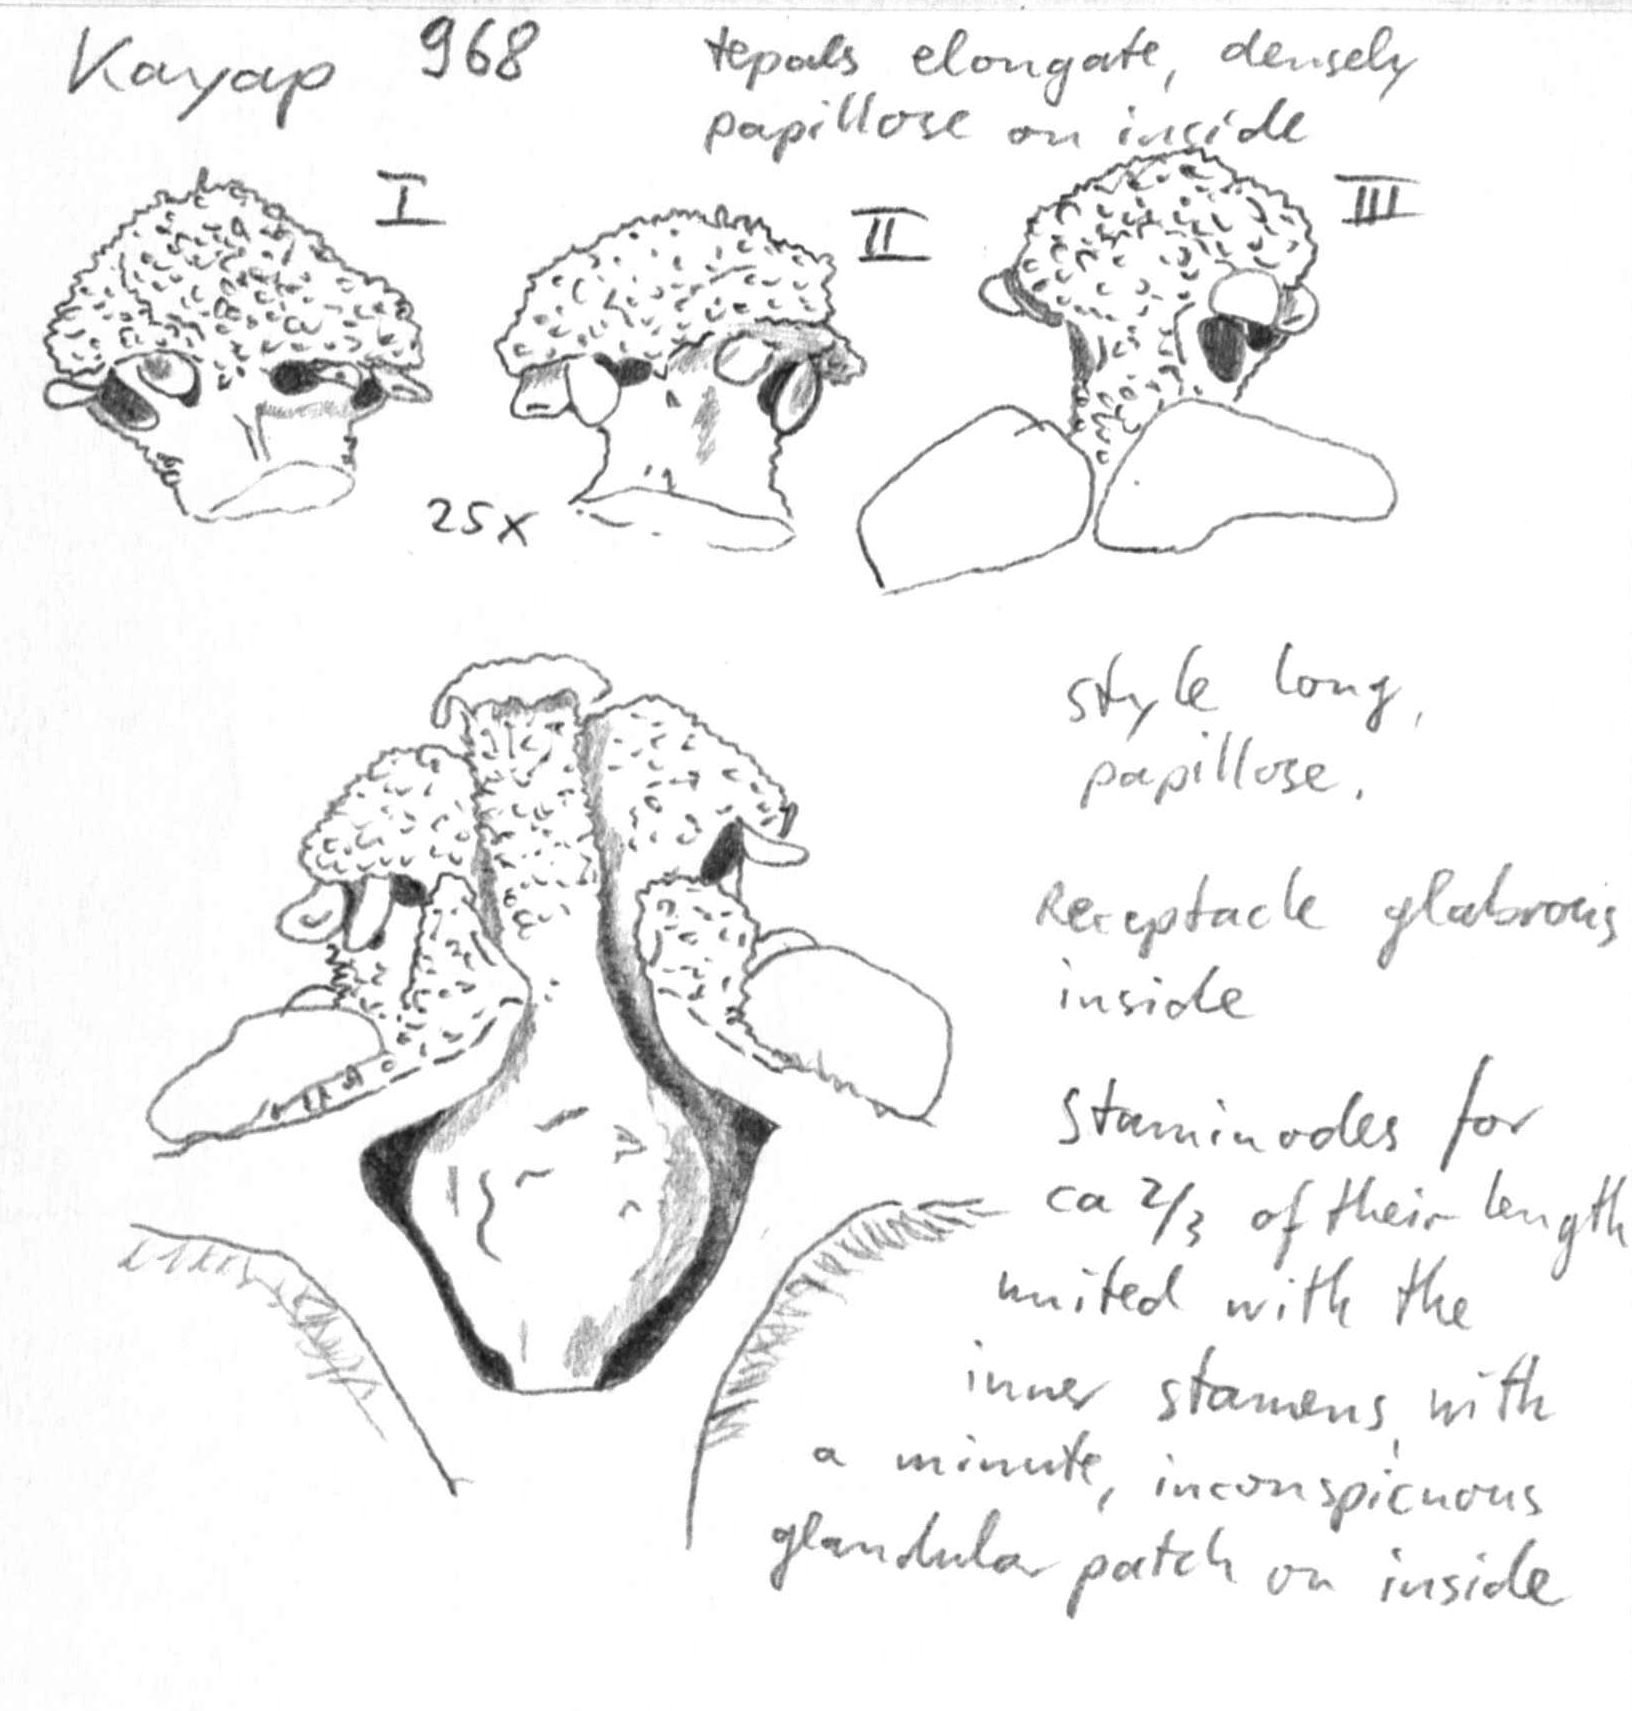 Kayap 968
tepals elongate, densely
papillose on inside
I
II
III
25x
style long,
papillose.
Receptacle glabrous
inside
Staminodes for
ca 2/3 of their length
united with the
inner stamens, with
a minute, inconspicuous
glandular patch on inside